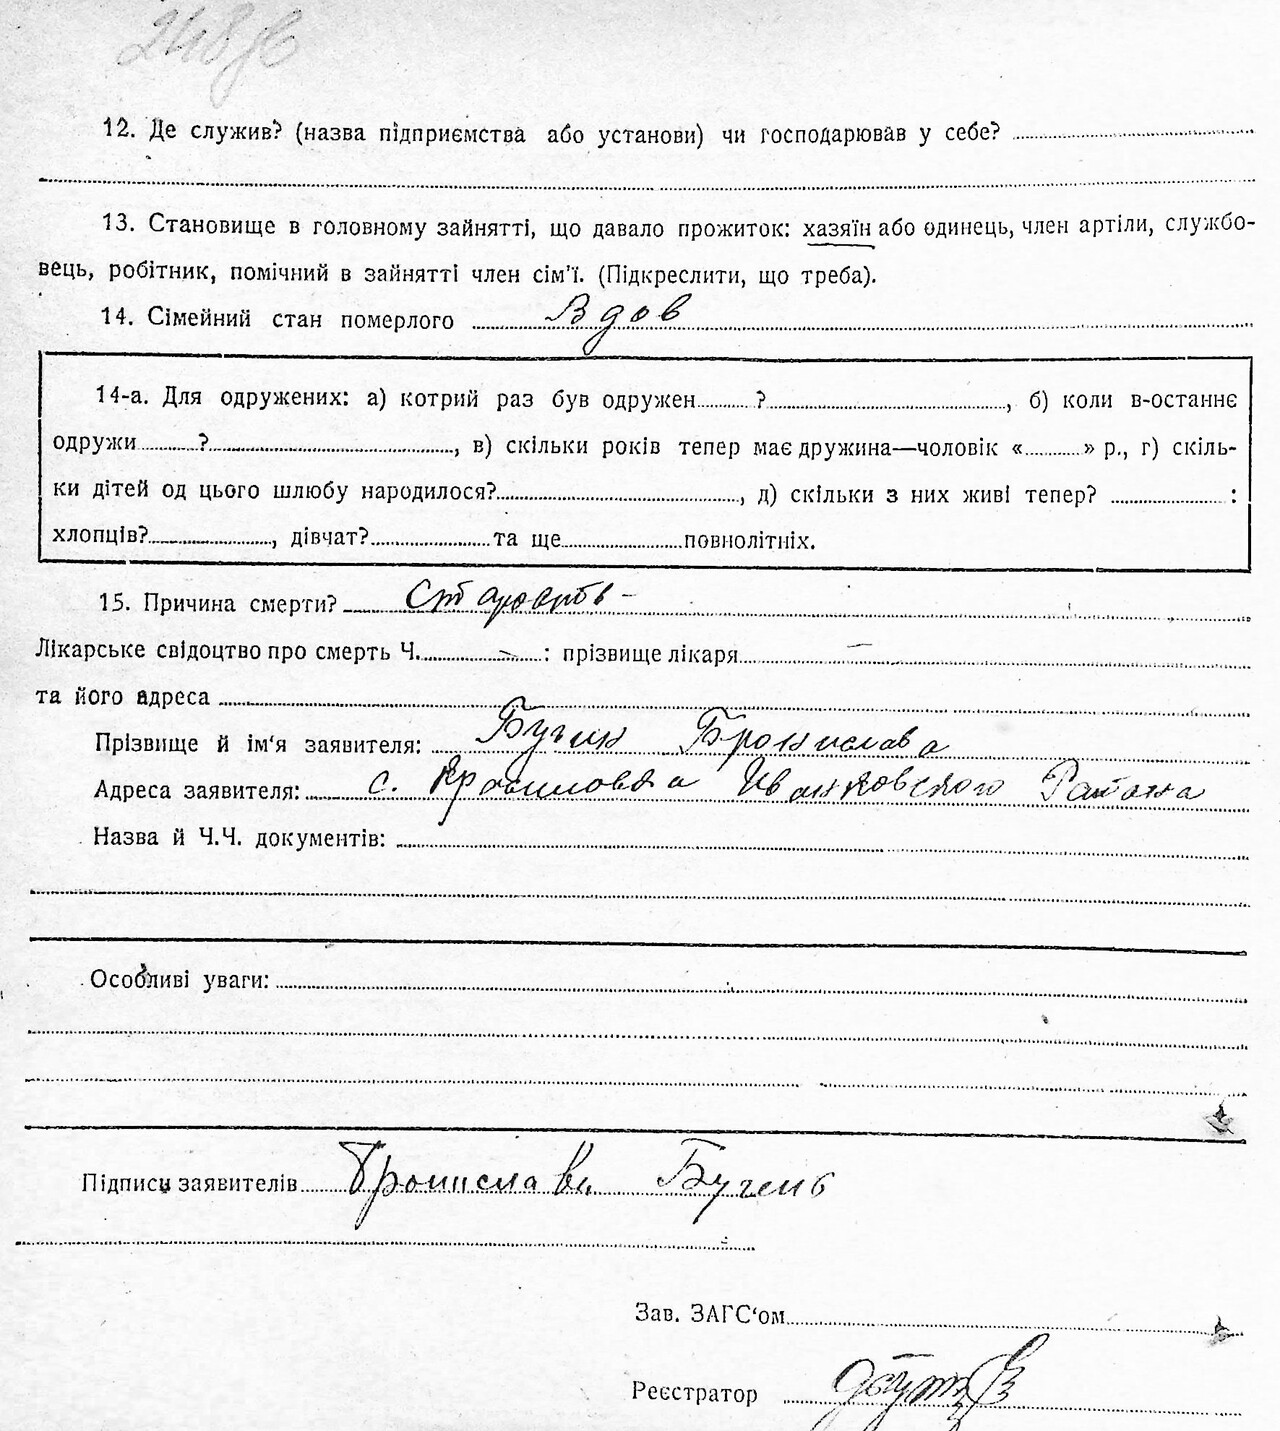 12. Де служив? (назва підприємства або установи) чи господарював у себе?
13. Становище в головному зайнятті, що давало прожиток: хазяїн або одинець, член артіли, службо-
вець, робітник, помічний в зайнятті член сім'ї. (Підкреслити, що треба).
14. Сімейний стан померлого Вдов
14-а. Для одружених: а) котрий раз був одружен ? , б) коли в-останнє
одружи ? , в) скільки років тепер має дружина—чоловік « » р., г) скіль-
ки дітей од цього шлюбу народилося? , д) скільки з них живі тепер? :
хлопців? , дівчат? та ще повнолітніх.
15. Причина смерти? Старость -
Лікарське свідоцтво про смерть Ч. - : прізвище лікаря —
та його адреса
Прізвище й ім'я заявителя: Бучин Бронислава
Адреса заявителя: с. Красиловка Иванковского Района
Назва й Ч.Ч. документів:
Особливі уваги:
Підписи заявителів Бронислава
Зав. ЗАГС'ом
Реєстратор